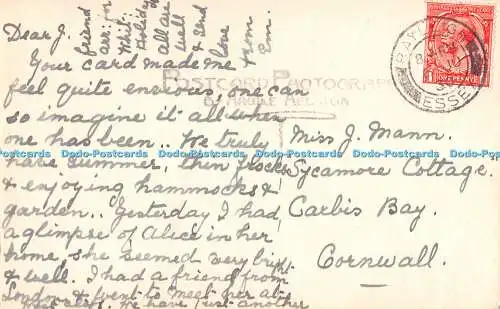 Dear J.
Your card made me
feel quite envious, one can
so imagine it all when
one has been.. We truly
have summer, thin frocks
& enjoying hammocks &
garden.. Yesterday I had
a glimpse of Alice in her
home, she seemed very bright
& well. I had a friend from
London & went to meet her at
We have just another
friend
arr: in
Whit
Holiday
All are
well
& send
love
from
Em.
POSTCARD PHOTOGRAPH
Miss J. Mann.
Sycamore Cottage.
Carbis Bay.
Cornwall.
RAYLEIGH
ESSEX
ONE PENNY
Dodo-Postcards Dodo-Postcards Dodo-Postcards Dodo-Postcards Dodo-Postcards Dodo-Postcards